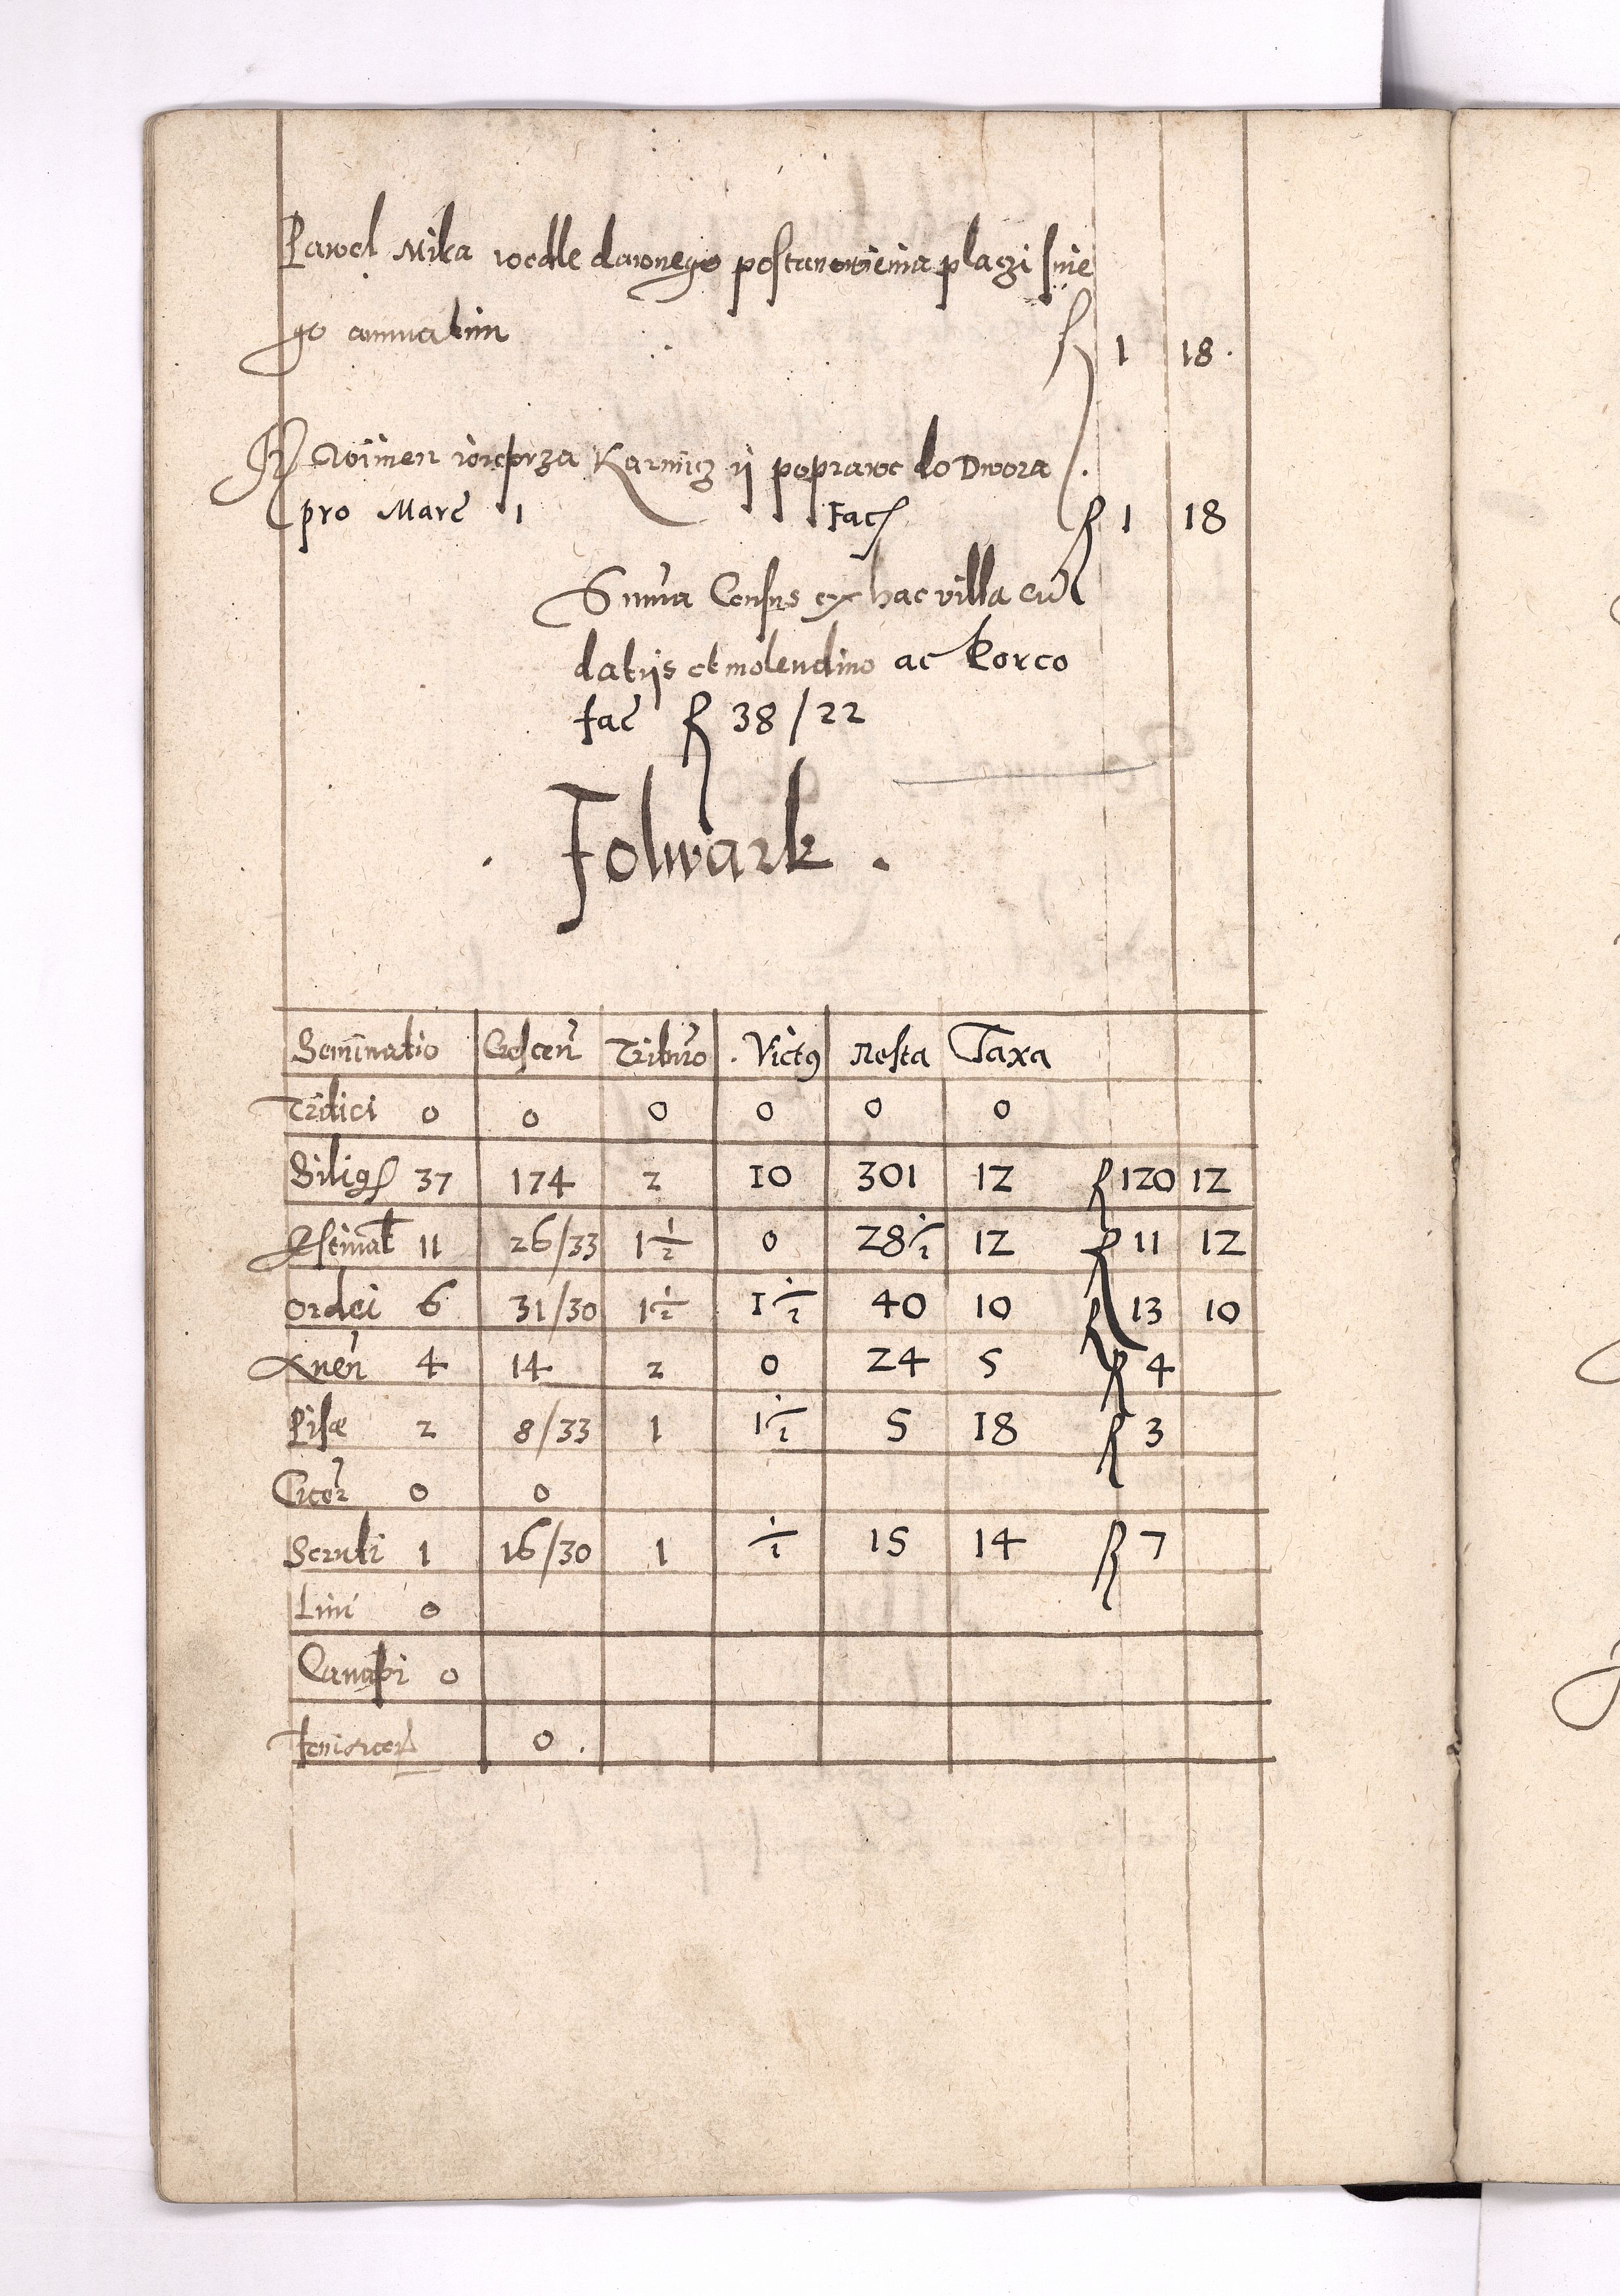 Pawel Mika wedle dawnego postanowienia placzi snie
go annuatim f 1 18.
Powinien wieprza Karmicz ij poprawe do Dwora
pro Marc 1 Fac f 1 18
Summa Census ex hac villa cu
datijs et molendino ac korco
fac f 38/22
. Folwark .
Seminatio Crescen Tritur . Victus Resta Taxa
Tritici 0 0 0 0 0 0
Siligs 37 174 2 10 301 12 f 120 12
11 26/33 1 1/2 0 28 1/2 12 f 11 12
Ordei 6 31/30 1 1/2 1 1/2 40 10 f 13 10
Aven 4 14 2 0 24 5 f 4
Pisae 2 8/33 1 1 1/2 5 18 f 3
Cicer 0 0
1 16/30 1 1/2 15 14 f 7
Lini 0
Canapi 0
0 .